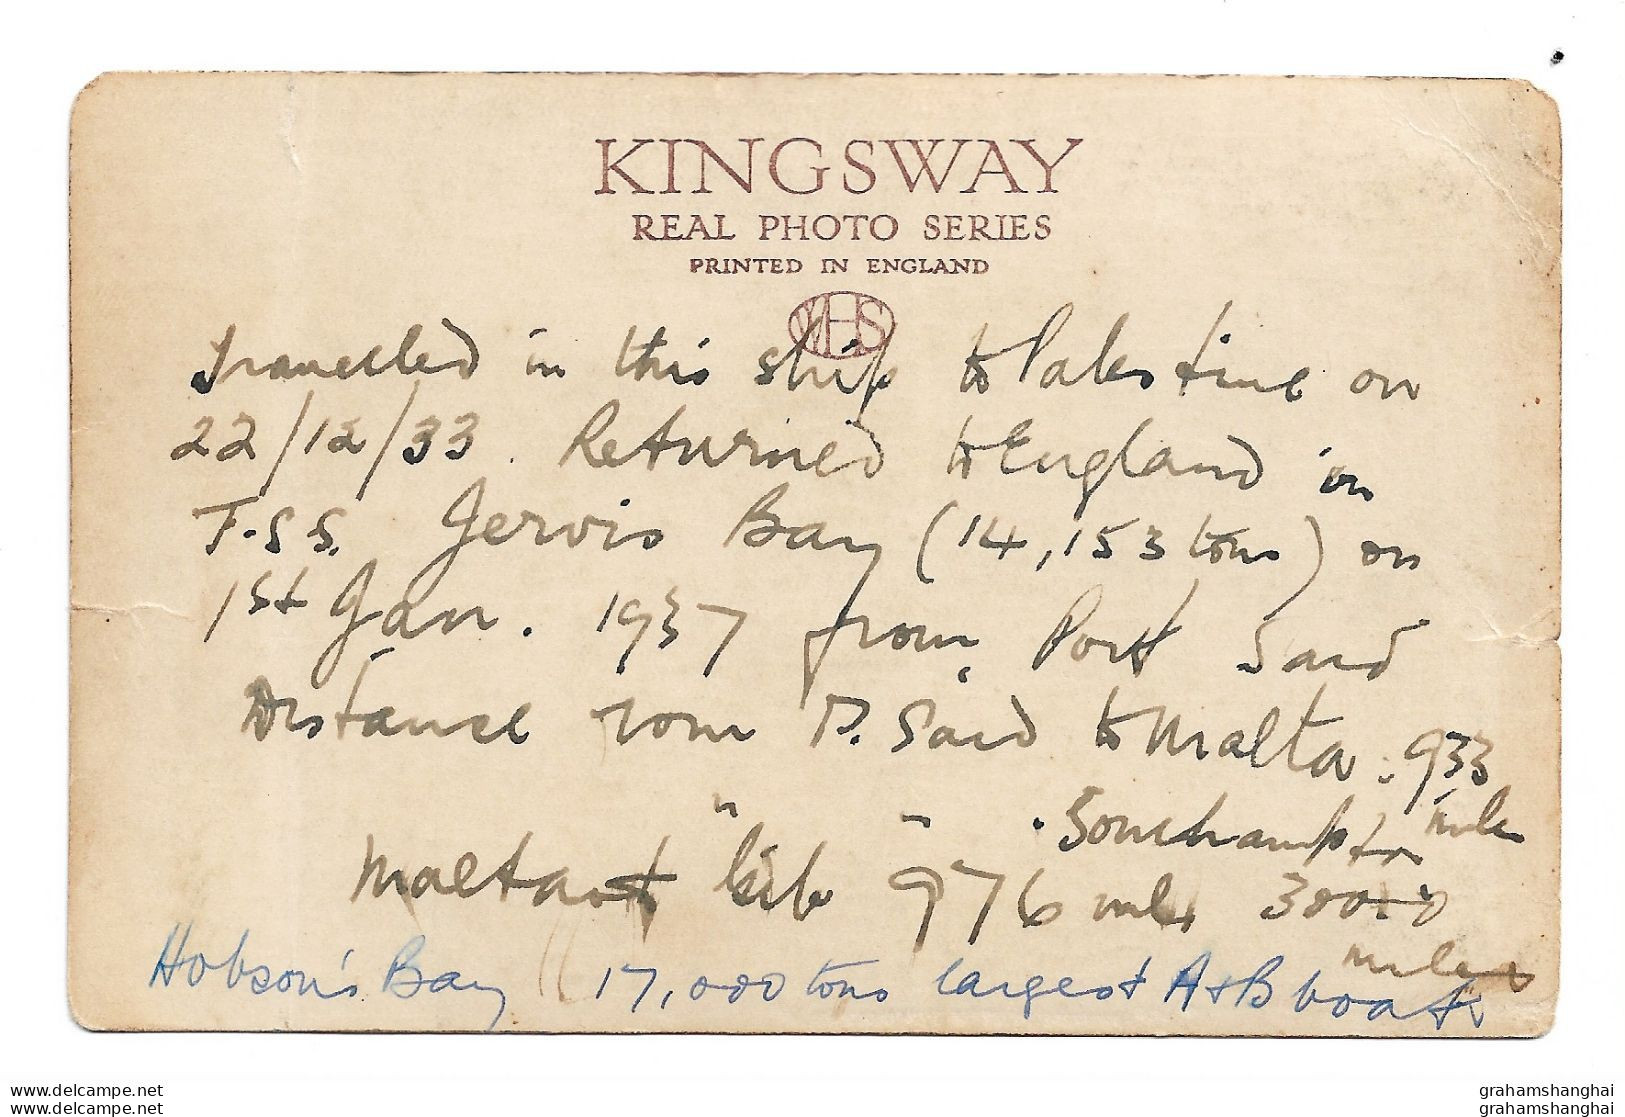 KINGSWAY
REAL PHOTO SERIES
PRINTED IN ENGLAND
WHS
Travelled in this ship to Palestine on
22/12/33. Returned to England in
T.S.S. Jervis Bay (14,153 tons) on
1st Jan. 1937 from Port Said
Distance from P. Said to Malta : 933
miles
" " . Southampton
Malta " 976 miles 3000
miles
Hobson's Bay 17,000 tons largest A & B boat
delcampe.net
delcampe.net
grahamshanghai
grahamshanghai